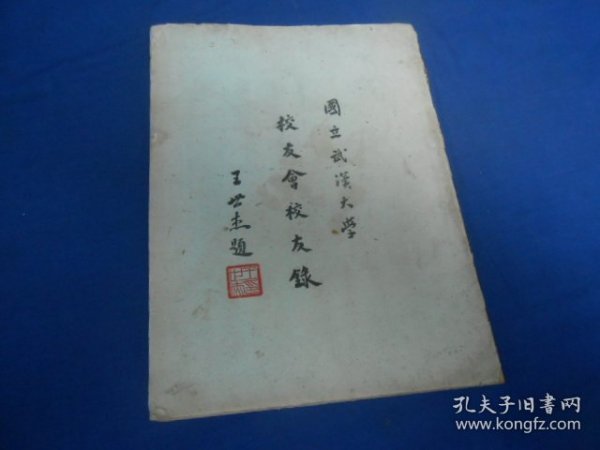 國立武漢大学
校友會校友錄
王世杰題
孔夫子旧書网
www.kongfz.com